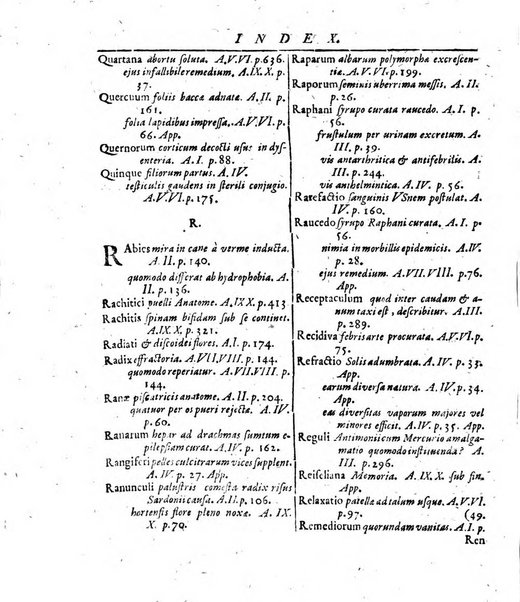 INDEX.
Quartana abortu soluta. A.V.VI. p.636.
ejus infallibile remedium. A.IX.X. p.
37.
Quercuum foliis baccæ adnatæ. A.II. p.
161.
folia lapidibus impressa. A.V.VI. p.
66. App.
Quernorum corticum decocti usus in dys-
enteria. A.I. p.88.
Quinque filiorum partus. A.IV.
testiculis gaudens in sterili conjugio.
A.V.VI. p.175.
R.
RAbies mira in cane à verme inducta.
A.II. p.140.
quomodo differat ab hydrophobia. A.
II. p.136.
Rachitici puelli Anatome. A.IX.X. p.413
Rachitis spinam bifidam sub se continet.
A.IX.X. p.321.
Radiati & discoidei flores. A.I. p.174.
Radix effractoria. A.VII.VIII. p.144.
quomodo reperiatur. A.VII.VIII. p.
144.
Ranæ piscatricis anatome. A.II. p.204.
quatuor per os pueri rejectæ. A.IV.
p.60.
Ranarum hepar ad drachmas sumtum e-
pilepsiam curat. A.IV. p.162.
Rangiferi pelles culcitrarum vices supplent.
A.IV. p.27. App.
Ranunculi palustris comesta radix risus
Sardonii causa. A.II. p.106.
hortensis flore pleno noxæ. A.IX
X. p.70.
Raparum albarum polymorpha excrescen-
tia. A.V.VI. p.199.
Raporum seminis uberrima messis. A.II.
p.26.
Raphani syrupo curata raucedo. A.I. p.
56.
frustulum per urinam excretum. A.
III. p.39.
vis antarthritica & antifebrilis. A.
III. p.244.
vis anthelmintica. A.IV. p.56.
Rarefactio sanguinis VSnem postulat. A.
IV. p.160.
Raucedo syrupo Raphani curata. A.I. p.
56.
nimia in morbillis epidemicis. A.IV.
p.28.
ejus remedium. A.VII.VIII. p.76.
App.
Receptaculum quod inter caudam & a-
num taxi est, describitur. A.III.
p.289.
Recidiva febris arte procurata. A.V.VI. p.
75.
Refractio Solis adumbrata. A.IV. p.33.
App.
earum diversa natura. A.IV. p.34.
App.
eas diversitas vaporum majores vel
minores efficit. A.IV. p.35. App.
Reguli Antimonii cum Mercurio amalga-
matio quomodo instituenda? A.
III. p.296.
Reiseliana Memoria. A.IX.X. sub fin.
App.
Relaxatio patellæ ad talum usque. A.V.VI.
p.97. (49.
Remediorum quorundam vanitas. A.I. p.
Ren